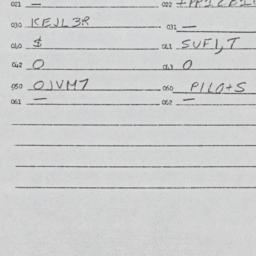 021 — 022
030 KEJL3R 031 —
040 $ 041 SUFI,T
042 0 043 0
050 OJVM7 060 PILO+S
061 — 062 —